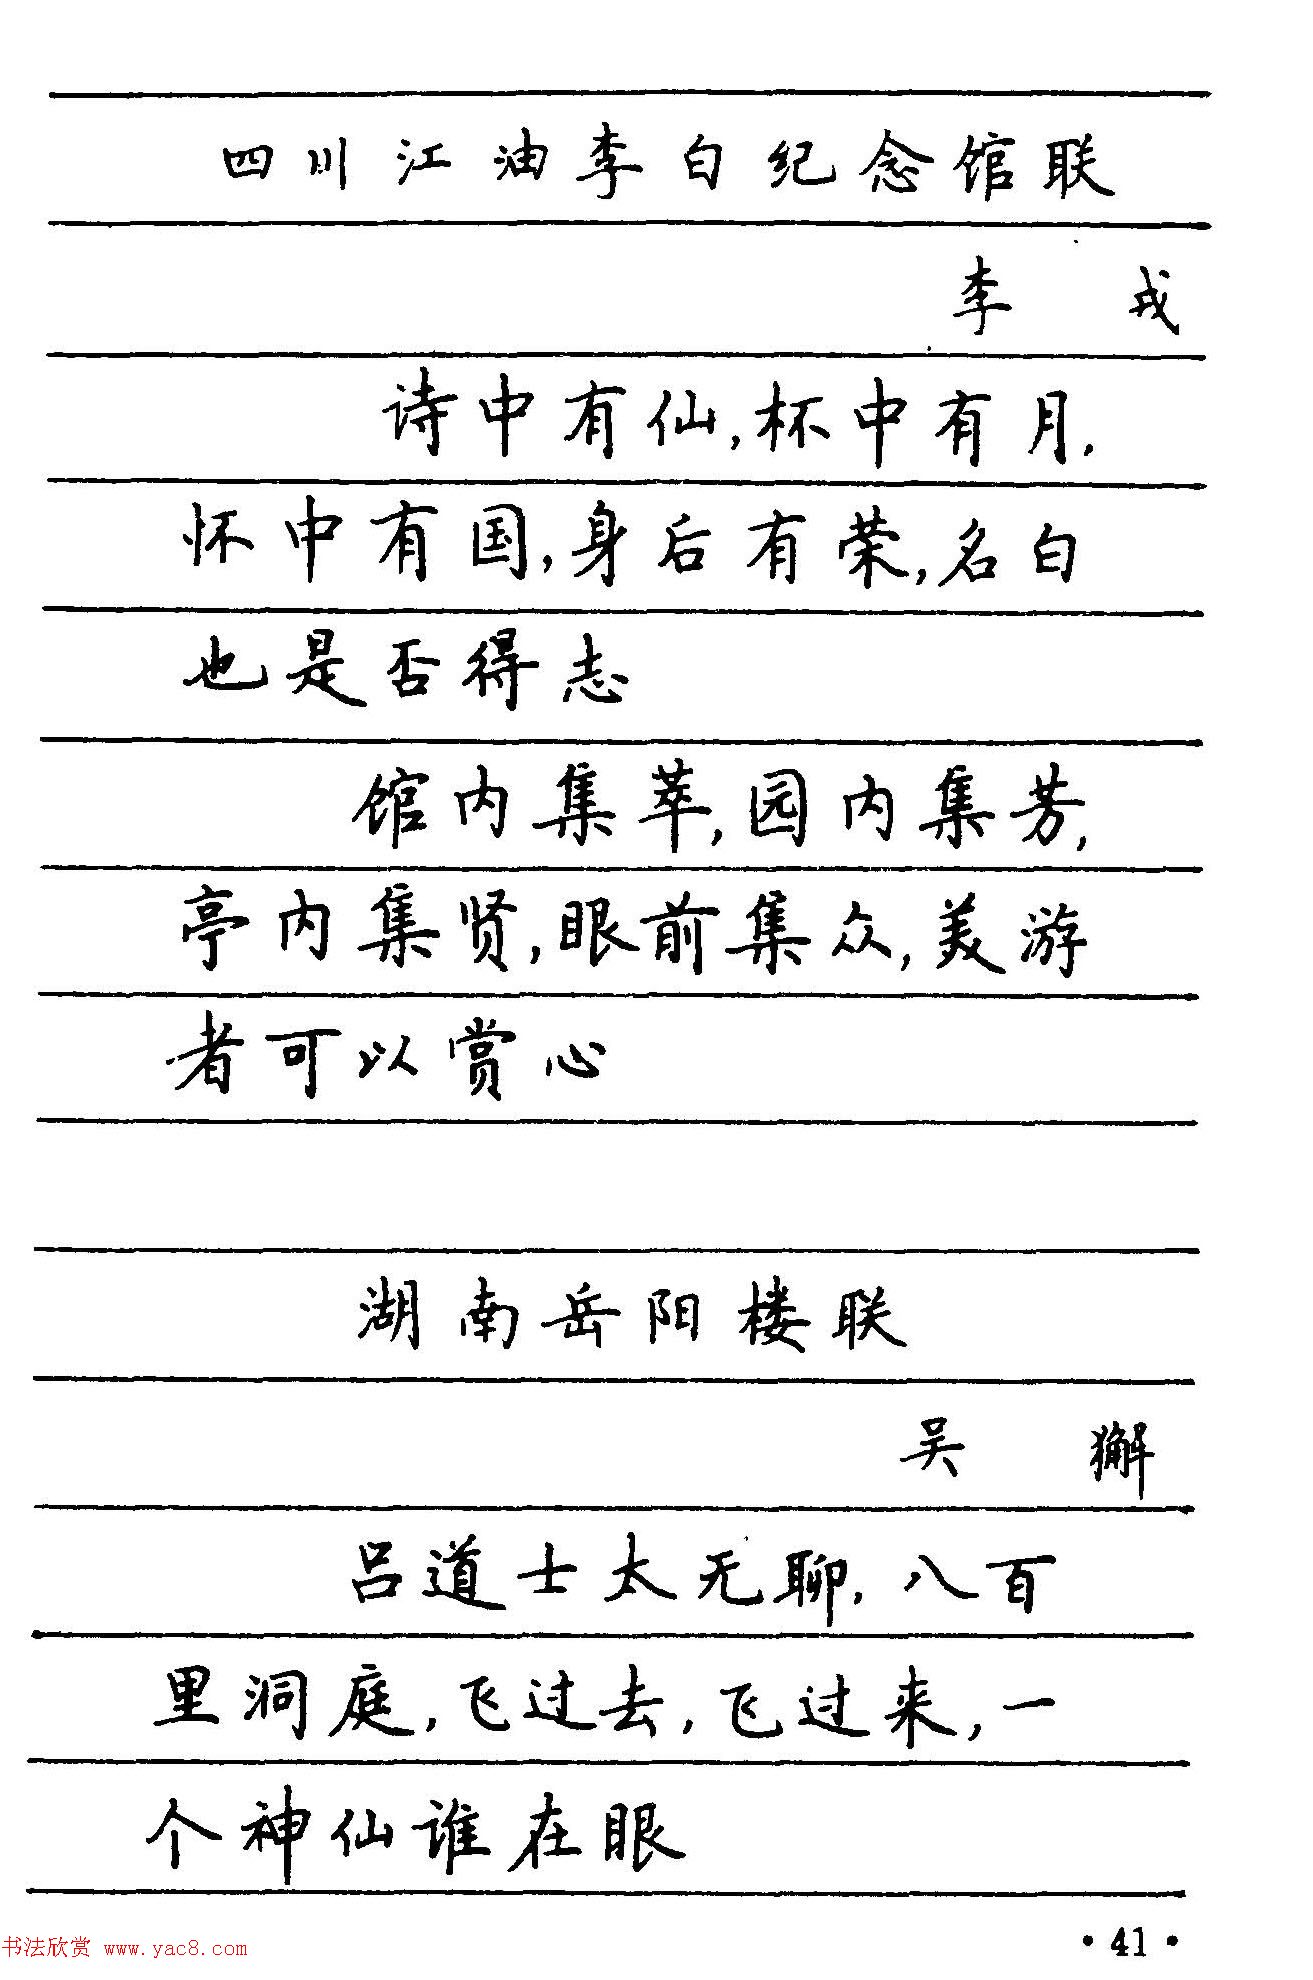 四川江油李白纪念馆联
李 戎
诗中有仙,杯中有月,
怀中有国,身后有荣,名白
也是否得志
馆内集萃,园内集芳,
亭内集贤,眼前集众,美游
者可以赏心
湖南岳阳楼联
吴 獬
吕道士太无聊,八百
里洞庭,飞过去,飞过来,一
个神仙谁在眼
·41·
书法欣赏 www.yac8.com